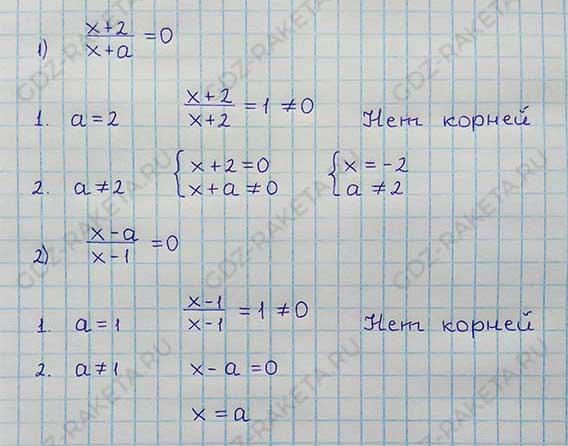 1) (x+2)/(x+a) = 0
1. a = 2 (x+2)/(x+2) = 1 ≠ 0 Нет корней
2. a ≠ 2 { x+2 = 0 { x = -2
x+a ≠ 0 a ≠ 2
2) (x-a)/(x-1) = 0
1. a = 1 (x-1)/(x-1) = 1 ≠ 0 Нет корней
2. a ≠ 1 x - a = 0
x = a
GDZ-RAKETA.RU